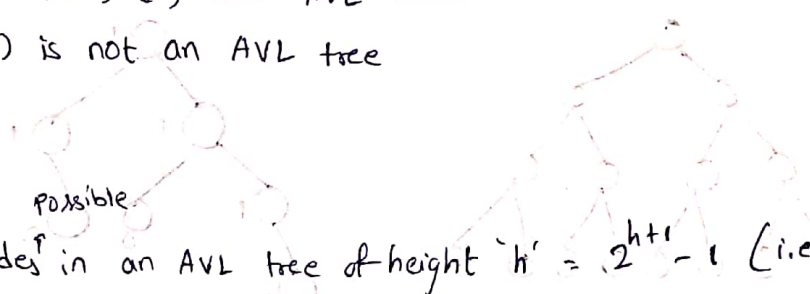 ) is not an AVL tree
possible
des in an AVL tree of height 'h' = 2^{h+1} - 1 (i.e